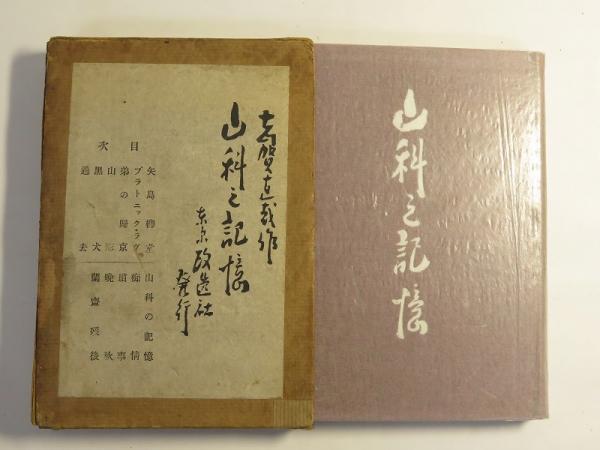 志賀直哉作
山科之記憶
東京改造社
發行
目次
矢島柳堂
プラトニック・ラヴ
弟の帰京
山形
黒犬
過去
山科の記憶
痴情
瑣事
晩秋
蘭齋歿後
山科之記憶